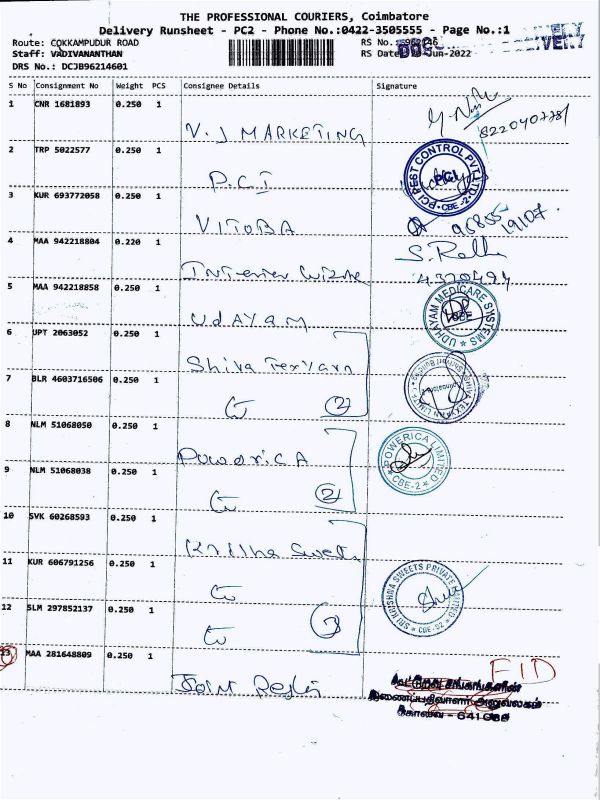 THE PROFESSIONAL COURIERS, Coimbatore
Delivery Runsheet - PC2 - Phone No.:0422-3505555 - Page No.:1
Route: COKKAMPUDUR ROAD
Staff: VADIVANANTHAN
DRS No.: DCJB96214601
RS No.
RS Date: Jun-2022
S No Consignment No Weight PCS Consignee Details Signature
1 CNR 1681893 0.250 1
V.J MARKETING
8220407781
2 TRP 5022577 0.250 1
P.C.I
PCI PEST CONTROL PVT LTD
PCI
CBE-2
3 KUR 693772058 0.250 1
VITOBA
95855 19107
4 MAA 942218804 0.220 1
4320494
5 MAA 942218858 0.250 1
UDAYAM
UDHAYAM MEDICARE SYSTEMS
CBE
6 UPT 2063052 0.250 1
Shiva Texyarn
7 BLR 4603716506 0.250 1
2
SHIVA TEXYARN LIMITED
8 NLM 51068050 0.250 1
PowericA
POWERICA LIMITED
CBE-2
9 NLM 51068038 0.250 1
2
10 SVK 60268593 0.250 1
11 KUR 606791256 0.250 1
SRI KRISHNA SWEETS PRIVATE LIMITED
CBE-92
12 SLM 297852137 0.250 1
3
13 MAA 281648809 0.250 1
இணைப்பதிவாளர் அலுவலகம்